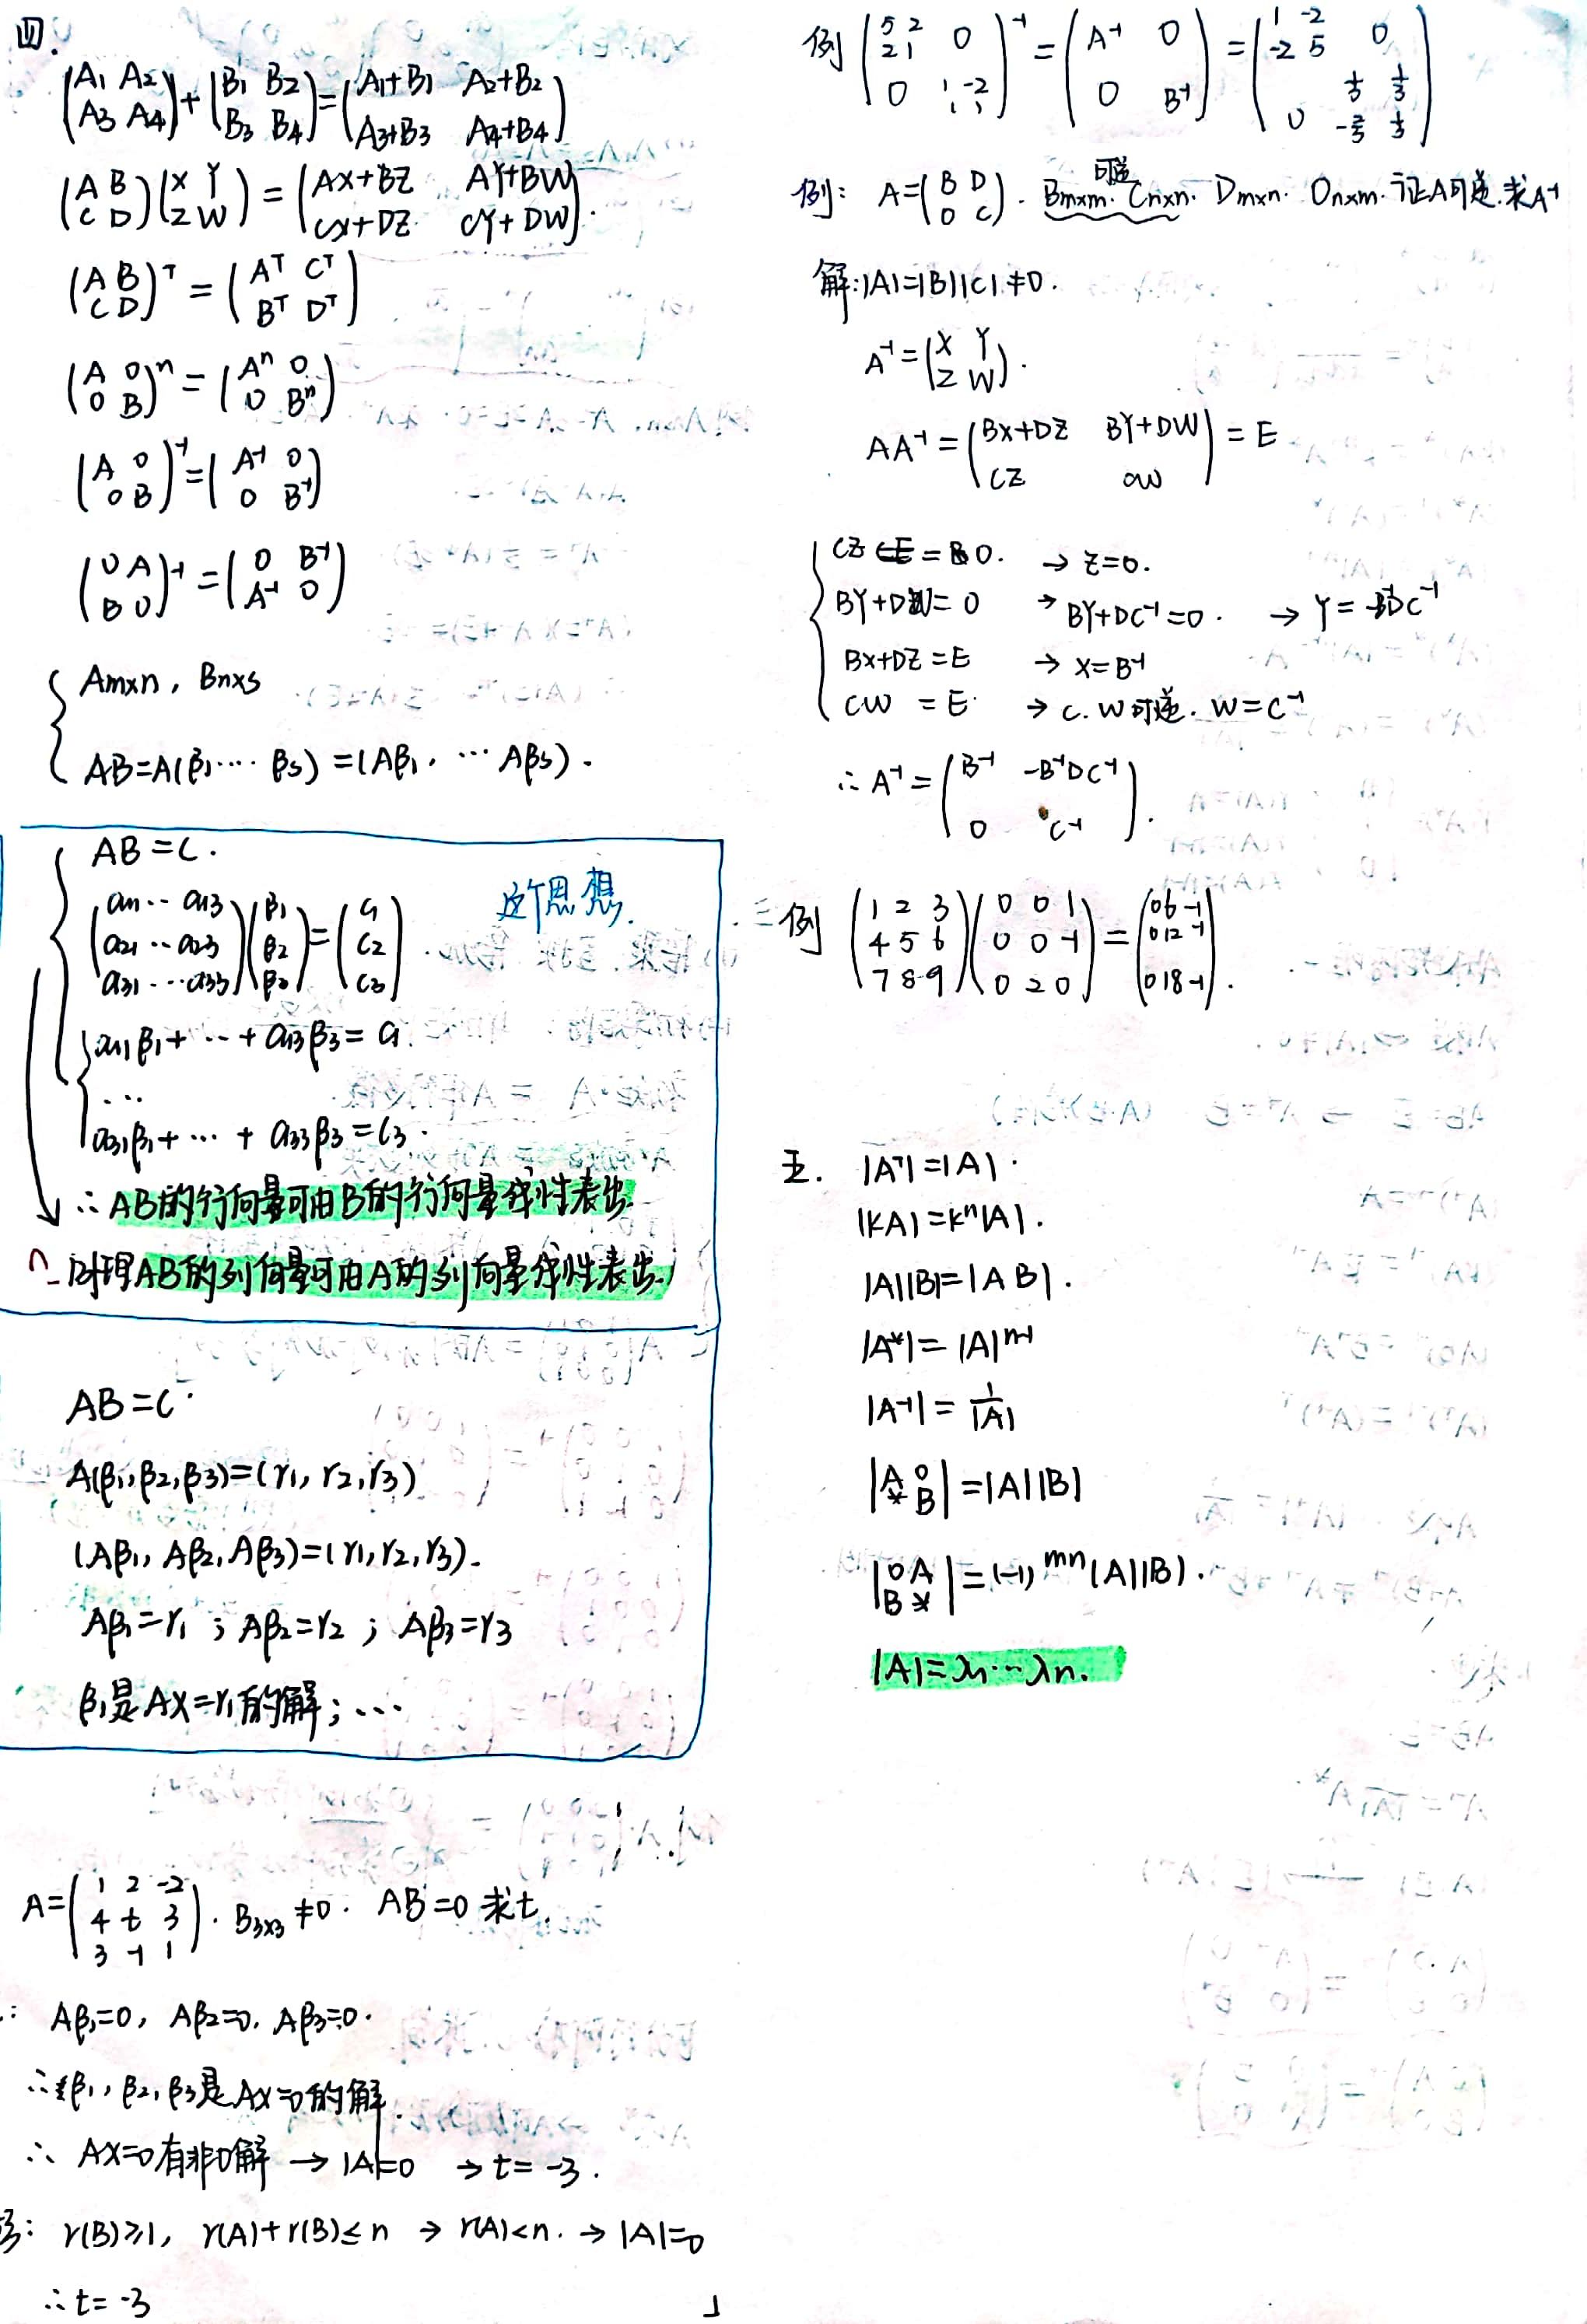 四.
(A₁ A₂ ; A₃ A₄) + (B₁ B₂ ; B₃ B₄) = (A₁+B₁ A₂+B₂ ; A₃+B₃ A₄+B₄)
(A B ; C D)(X Y ; Z W) = (AX+BZ AY+BW ; CX+DZ CY+DW).
(A B ; C D)ᵀ = (Aᵀ Cᵀ ; Bᵀ Dᵀ)
(A 0 ; 0 B)ⁿ = (Aⁿ 0 ; 0 Bⁿ)
(A 0 ; 0 B)⁻¹ = (A⁻¹ 0 ; 0 B⁻¹)
(0 A ; B 0)⁻¹ = (0 B⁻¹ ; A⁻¹ 0)
Am×n, Bn×s
AB=A(β₁···· βs) = (Aβ₁, ··· Aβs).
AB=C.
这个思想.
(a₁₁·· a₁₃ ; a₂₁·· a₂₃ ; a₃₁···a₃₃)(β₁ ; β₂ ; β₃) = (C₁ ; C₂ ; C₃)
a₁₁β₁+ ··· + a₁₃β₃ = C₁
···
a₃₁β₁+ ··· + a₃₃β₃ = C₃.
∴ AB的行向量可由B的行向量线性表出.
同理AB的列向量可由A的列向量线性表出.
AB=C.
A(β₁,β₂,β₃)=(γ₁, γ₂, γ₃)
(Aβ₁, Aβ₂, Aβ₃)=(γ₁,γ₂,γ₃).
Aβ₁=γ₁ ; Aβ₂=γ₂ ; Aβ₃=γ₃
β₁是AX=γ₁的解; ···
A=(1 2 -2 ; 4 t 3 ; 3 -1 1). B₃ₓ₃≠0. AB=0 求t.
: Aβ₁=0, Aβ₂=0, Aβ₃=0.
∴β₁, β₂, β₃是AX=0的解.
∴ AX=0有非0解 → |A|=0 → t=-3.
: r(B)≥1, r(A)+r(B)≤n → r(A)<n. → |A|=0
∴t=-3
例 (5 2 0 ; 2 1 ; 0 1 -2 ; 1 1)⁻¹ = (A⁻¹ 0 ; 0 B⁻¹) = (1 -2 0 ; -2 5 ; 1/3 2/3 ; 0 -1/3 1/3)
例: A=(B D ; 0 C). Bm×m. Cn×n. 可逆 Dm×n. 0n×m. 证A可逆.求A⁻¹
解:|A|=|B||C|≠0.
A⁻¹=(X Y ; Z W).
AA⁻¹=(BX+DZ BY+DW ; CZ CW)=E
CZ = 0. → Z=0.
BY+DW=0 → BY+DC⁻¹=0. → Y=-B⁻¹DC⁻¹
BX+DZ=E → X=B⁻¹
CW=E. → C. W可逆. W=C⁻¹
∴ A⁻¹=(B⁻¹ -B⁻¹DC⁻¹ ; 0 C⁻¹).
例 (1 2 3 ; 4 5 6 ; 7 8 9)(0 0 1 ; 0 0 -1 ; 0 2 0)=(0 6 -1 ; 0 12 -1 ; 0 18 -1).
五. |Aᵀ|=|A|.
|kA|=kⁿ|A|.
|A||B|=|AB|.
|A*|=|A|ⁿ⁻¹
|A⁻¹|=1/|A|
|A 0 ; * B|=|A||B|
|0 A ; B *|=(-1)ᵐⁿ|A||B|.
|A|=λ₁···λn.